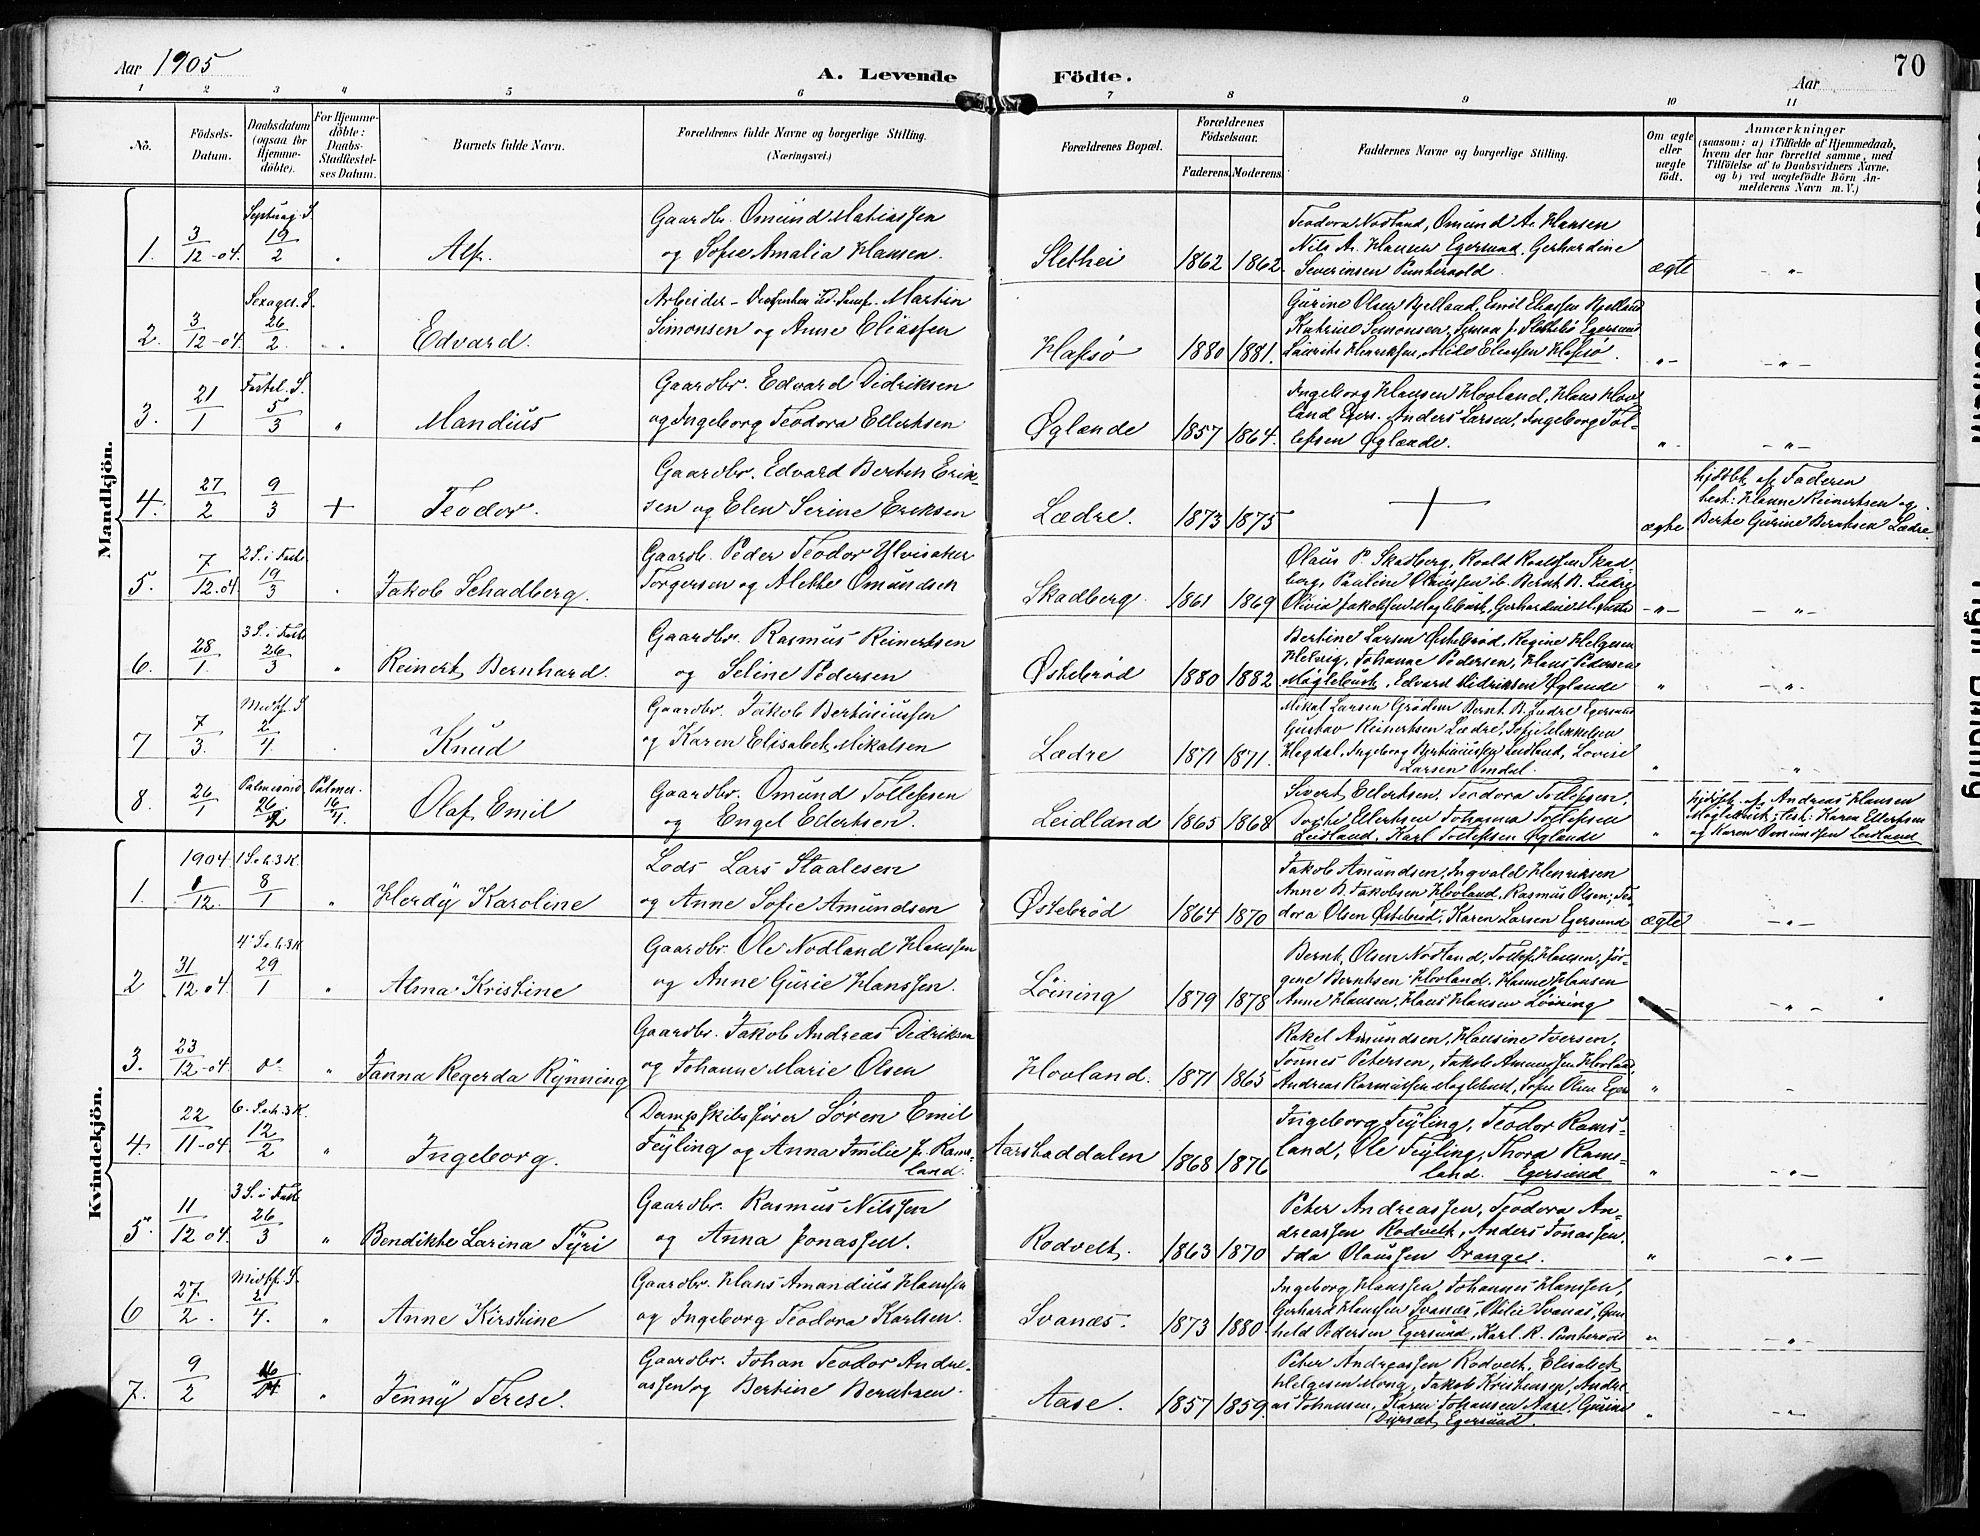 Aar 1905
A. Levende Födte.
Aar
70
1 2 3 4 5 6 7 8 9 10 11
No.
Födsels-Datum.
Daabsdatum (ogsaa for Hjemmedöbte).
For Hjemmedöbte: Daabs-Stadfæstelses Datum.
Barnets fulde Navn.
Forældrenes fulde Navne og borgerlige Stilling. (Næringsvei.)
Forældrenes Bopæl.
Forældrenes Födselsaar.
Faderens. Moderens.
Faddernes Navne og borgerlige Stilling.
Om ægte eller uægte födt.
Anmærkninger
(saasom: a) i Tilfælde af Hjemmedaab, hvem der har forrettet samme, med Tilföielse af to Daabsvidners Navne, og b) ved uægtefödte Börn Anmelderens Navn m. V.)
Mandkjön.
1. 3/12-04. Septuag. S. 19/2 "
Alf.
Gaardbr. Omund Matiassen
og Sofie Amalia Hansen.
Slethei 1862 1862.
Teodora Nodland, Omund A. Hansen
Nils A. Hansen Egersund. Gerhardine
Severinsen Puntervold.
ægte -"-
2. 3/12-04. Sexages. S. 26/2.
Edvard.
Arbeider - Martin
Simonsen og Anne Eliassen
Hafsø 1880 1881.
Gurine Olsen Bjelland, Emil Eliassen Bjelland
Katrine Simonsen, Slettebø Egersund
Laurits Henriksen, Milo Eliassen Hafsø.
-"- -"-
3. 21/1 Fastel. S. 5/3 "
Mandius
Gaardbr. Edvard Didriksen
og Ingeborg Teodora Ellertsen
Øglænde 1857 1864.
Ingeborg Hansen Hovland, Hans Hovland
Egers. Anders Larsen, Ingeborg Tollefsen
Øglænde.
" -"-
4. 27/2 9/3 +
Teodor.
Gaardbr. Edvard Bertin Eriksen
og Elen Serine Eriksen
Lædre. 1873 1875
+
ægte
hjdøbt af Faderen
test: Hanne Reinertsen og
Berte Gurine Berntsen Lædre.
5. 7/12.04. 2 S. i Faste 19/3 "
Jakob Schadberg.
Gaardb. Peder Teodor Ylvisaker
Torgersen og Alette Omundsen
Skadberg. 1861 1869
Olaus P. Skadberg, Roald Roaldsen Skadberg,
Pauline Olaussen ib. Bernt B. Lædre
Olivia Jakobsen Maglebust, Gerhardine M.
-"- -"-
6. 28/1. 3 S. i Faste 26/3 "
Reinert Bernhard.
Gaardbr. Rasmus Reinertsen
og Seline Pedersen
Østebrød 1880 1882
Bertine Larsen Østebrød, Regine Helgesen
Helvig, Johanne Pedersen, Hans Pedersen
Maglebust, Edvard Didriksen Øglænde
" -"-
7 7/3. Midtf. S. 2/4.
Knud
Gaardbr. Jakob Bertinussen
og Karen Elisabet Mikalsen
Lædre 1871 1871.
Mikal Larsen Grødem Bernt B. Lædre Egersund
Gustav Reinertsen Lædre, Sofie Mikkelsen
Hegdal, Ingeborg Bertinussen Leidland, Lovise
Larsen Omdal.
" "
8. 26/1 Palmesønd. 26/2 Palmes. 16/4.
Olaf Emil
Gaardbr. Omund Tollefsen
og Engel Ellertsen.
Leidland 1865 1868
Sivert Ellertsen, Teodora Tollefsen,
Ellertsen Johanna Tollefsen
Leidland. Karl Tollefsen Øglænde
"
hjdøbt af Andreas Hansen
Maglebust; test: Karen Ellertsen
og Karen Omundsen Leidland
Kvindekjön.
1. 1904. 1/12. 1 S. e. h. 3 K. 8/1 "
Herdy Karoline
Lods Lars Staalesen
og Anne Sofie Amundsen
Østebrød 1864 1870
Jakob Amundsen, Ingvald Henriksen
Anne B. Jakobsen Hovland, Rasmus Olsen, Teodora
Olsen Østebrød, Karen Larsen Egersund
ægte -"-
2 31/12 04. 4 S. e. h. 3 K. 29/1 "
Alma Kristine
Gaardbr. Ole Nodland Hanssen
og Anne Gurie Hanssen.
Løining 1879 1878
Bernt Olsen Nodland, Tollef Hansen, Jørgene
Berntsen Hovland, Hanne Hansen
Anne Hansen, Hans Hansen Løining
-"-
3. 23/12-04. do "
Janna Regerda Rynning
Gaardbr. Jakob Andreas Didriksen
og Johanne Marie Olsen
Hovland. 1871 1865
Rakel Amundsen, Hansine Iversen,
Tønnes Petersen, Jakob Amundsen Hovland,
Andreas Rasmussen Maglebust, Sofie Olsen Egers
"
4. 22/11-04. 6. S. e. h. 3 K. 12/2 "
Ingeborg.
Dampskibsfører Søren Emil
Feyling og Anna Emilie f. Ramsland.
Aarstaddalen 1868 1876
Ingeborg Feyling, Teodor Ramsland,
Ole Feyling, Thora Ramsland.
Egersund
" -"-
5. 11/12 04. 3 S. i Faste 26/3 "
Bendikte Larina Tyri
Gaardbr. Rasmus Nilssen
og Anna Jonassen.
Rodvelt. 1863 1870
Peter Andreassen, Teodora Andreassen
Rodvelt, Anders Jonassen,
Ida Olaussen Drange.
" -"-
6 27/2. Midtf. S. 2/4. "
Anne Kirstine
Gaardbr. Hans Amandius Hanssen
og Ingeborg Teodora Karlsen.
Svanæs. 1873 1880.
Ingeborg Hanssen, Johannes Hanssen,
Gerhard Hanssen Svanæs, Otilie Svanæs, Gunhild
Pedersen Egersund, Karl R. Puntervold
" -"-
7. 9/2 16/4 "
Jenny Terese.
Gaardbr. Johan Teodor Andreassen
og Bertine Berntsen.
Aase. 1857 1859.
Peter Andreassen Rodvelt, Elisabet
Helgesen Mong, Jakob Kristensen, Andreas
Johansen, Karen Johansen Aase, Gurine
Egersund.
" -"-